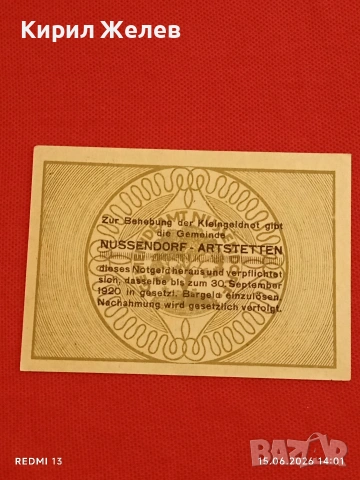 Кирил Желев
Zur Behebung der Kleingeldnot gibt
die Gemeinde
NUSSENDORF - ARTSTETTEN
dieses Notgeld heraus und verpflichtet
sich, dasselbe bis zum 30. September
1920 in gesetzl. Bargeld einzulösen.
Nachahmung wird gesetzlich verfolgt.
REDMI 13
15.06.2026 14:01
BAZAR